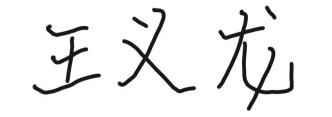 王义龙